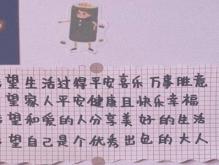 望生活过得平安喜乐 万事胜意
望家人平安健康且快乐幸福
望和爱的人分享美好的生活
望自己是个优秀出色的大人